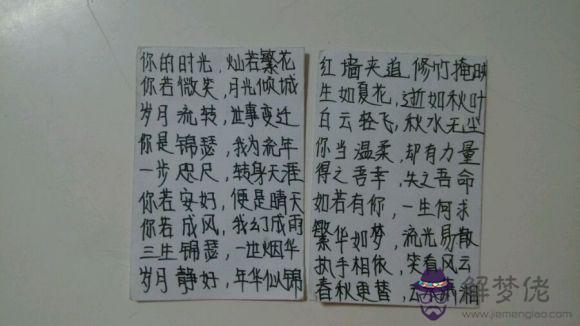 你的时光，灿若繁花
你若微笑，月光倾城
岁月流转，世事变迁
你是锦瑟，我为流年
一步咫尺，转身天涯
你若安好，便是晴天
你若成风，我幻成雨
三生锦瑟，一世烟华
岁月静好，年华似锦
红墙夹道，修竹掩映
生如夏花，逝如秋叶
白云轻飞，秋水无尘
你当温柔，却有力量
得之吾幸，失之吾命
如若有你，一生何求
繁华如梦，流光易散
执手相依，笑看风云
春秋更替，云
解梦佬
www.jiemenglao.com